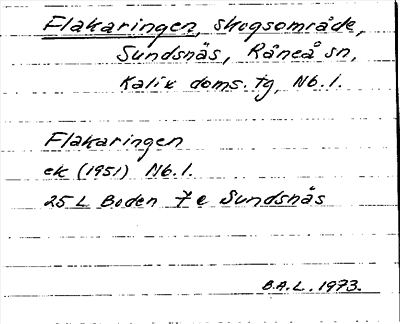 Flakaringen, skogsområde,
Sundsnäs, Råneå sn,
Kalix doms. tg, Nb. l.
Flakaringen
ek (1951) Nb. l.
25 L Boden 7 e Sundsnäs
B.A.L. 1973.